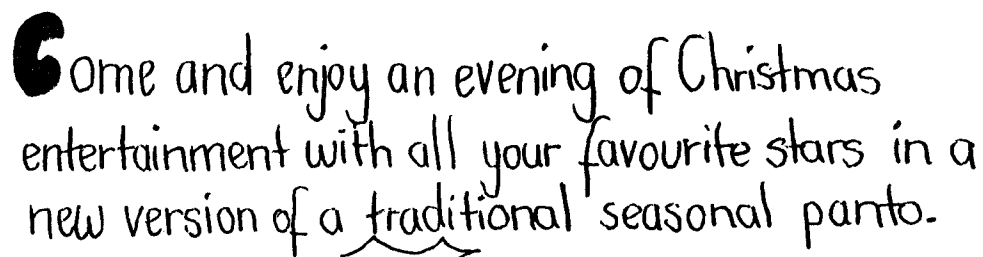 Come and enjoy an evening of Christmas
entertainment with all your favourite stars in a
new version of a traditional seasonal panto.